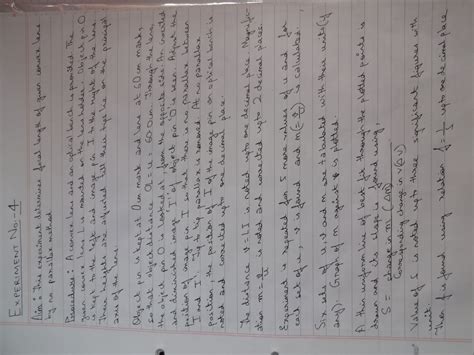 EXPERIMENT No:-4
Aim: This experiment determine focal length of given convex lens
by no parallax method.
Procedure: A convex lens and an optical bench is provided. The
given convex lens L is mounted on the lens holder. Object pin O
is kept to the left and image pin I to the right of the lens.
Their heights are adjusted till their tips lie on the principal
axis of the lens.
Object pin is kept at 0cm mark and lens at 60.0cm mark,
so that object distance OL = u = 60.0cm. Through the lens,
the object pin O is looked at from the opposite side. An inverted
and diminished image I' of object pin O is seen. Adjust the
position of image pin I so that there is no parallax between
I and I'. Tip to tip parallax is removed. At no parallax
position, the position of I of the image pin on optical bench is
noted and corrected upto one decimal place.
The distance v = LI is noted upto one decimal place. Magnifi-
cation m = is noted and corrected upto 2 decimal places.
Experiment is repeated for 5 more values of u and for
each set of u, v is found and m(= ) is calculated.
Six sets of u, v and m are tabulated with their unit (if
any). Graph of m against v is plotted.
A thin uniform line of best fit through the plotted points is
drawn and its slope is found using,
S = change in M (ΔM)
Corresponding change in v (Δv)
Value of S is noted upto three significant figures with
unit.
Then f is found using relation f = 1/S upto one decimal place